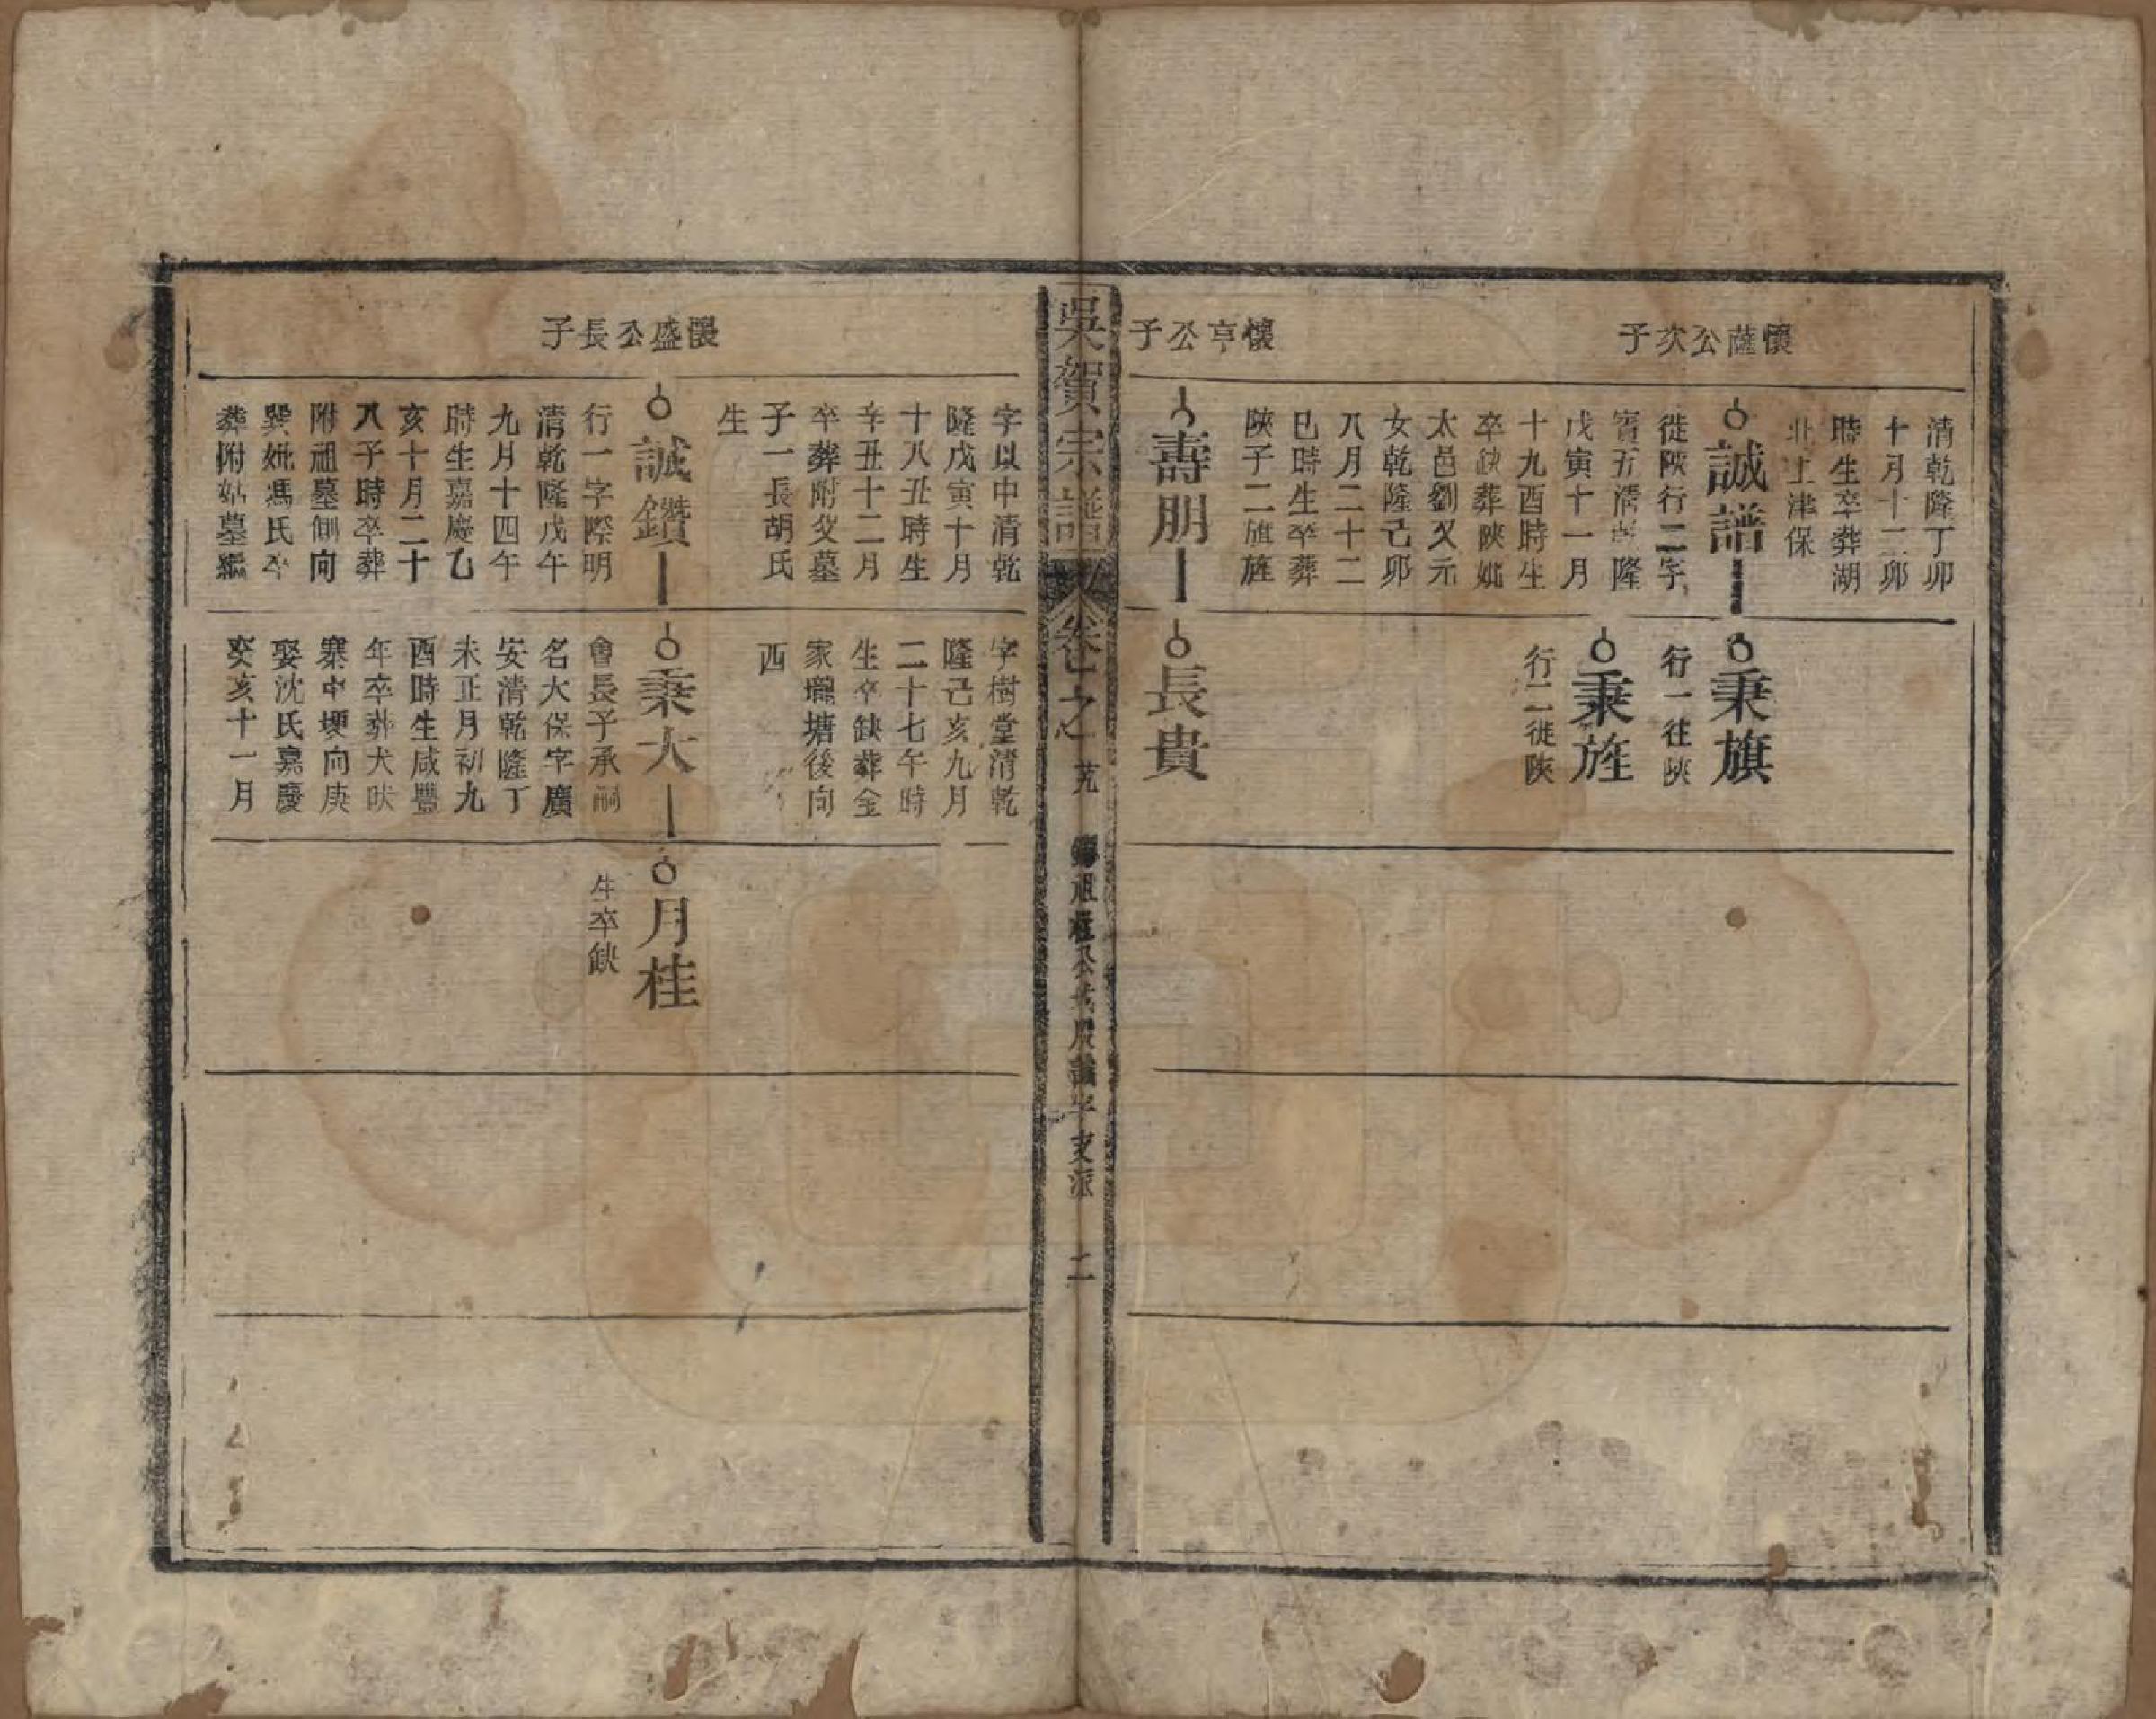 懷薩公次子
懷亨公子
清乾隆丁卯
十月十二卯
時生卒葬湖
北上津保
誠譜
徙陝行二字
寶五清乾隆
戊寅十一月
十九酉時生
卒缺葬陝妣
太邑劉文元
女乾隆己卯
八月二十二
巳時生卒葬
陝子二旗旌
壽朋
秉旗
行一徃陝
秉旌
行二徙陝
長貴
吳賀宗譜
卷之
祖
公
房譜字支派
二
懷盛公長子
字以中清乾
隆戊寅十月
十八丑時生
辛丑十二月
卒葬附父墓
子一長胡氏
生
誠鑽
行一字際明
清乾隆戊午
九月十四午
時生嘉慶乙
亥十月二十
八子時卒葬
附祖墓側向
巽妣馮氏卒
葬附姑墓繼
字樹堂清乾
隆己亥九月
二十七午時
生卒缺葬金
家壠塘後向
西
秉大
會長子承嗣
名大保字廣
安清乾隆丁
未正月初九
酉時生咸豐
年卒葬犬吠
寨中埂向庚
娶沈氏嘉慶
癸亥十一月
月桂
生卒缺